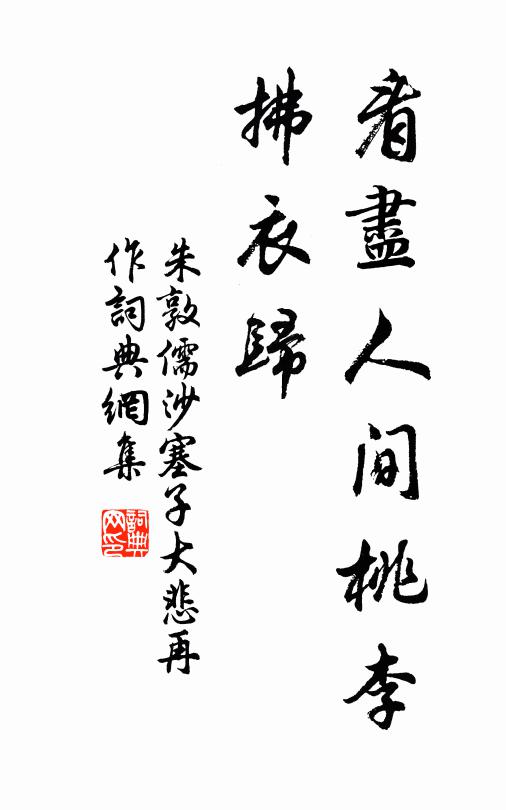 看盡人间桃李
拂衣歸
朱敦儒沙塞子大悲再
作詞典網集
詞典
网印